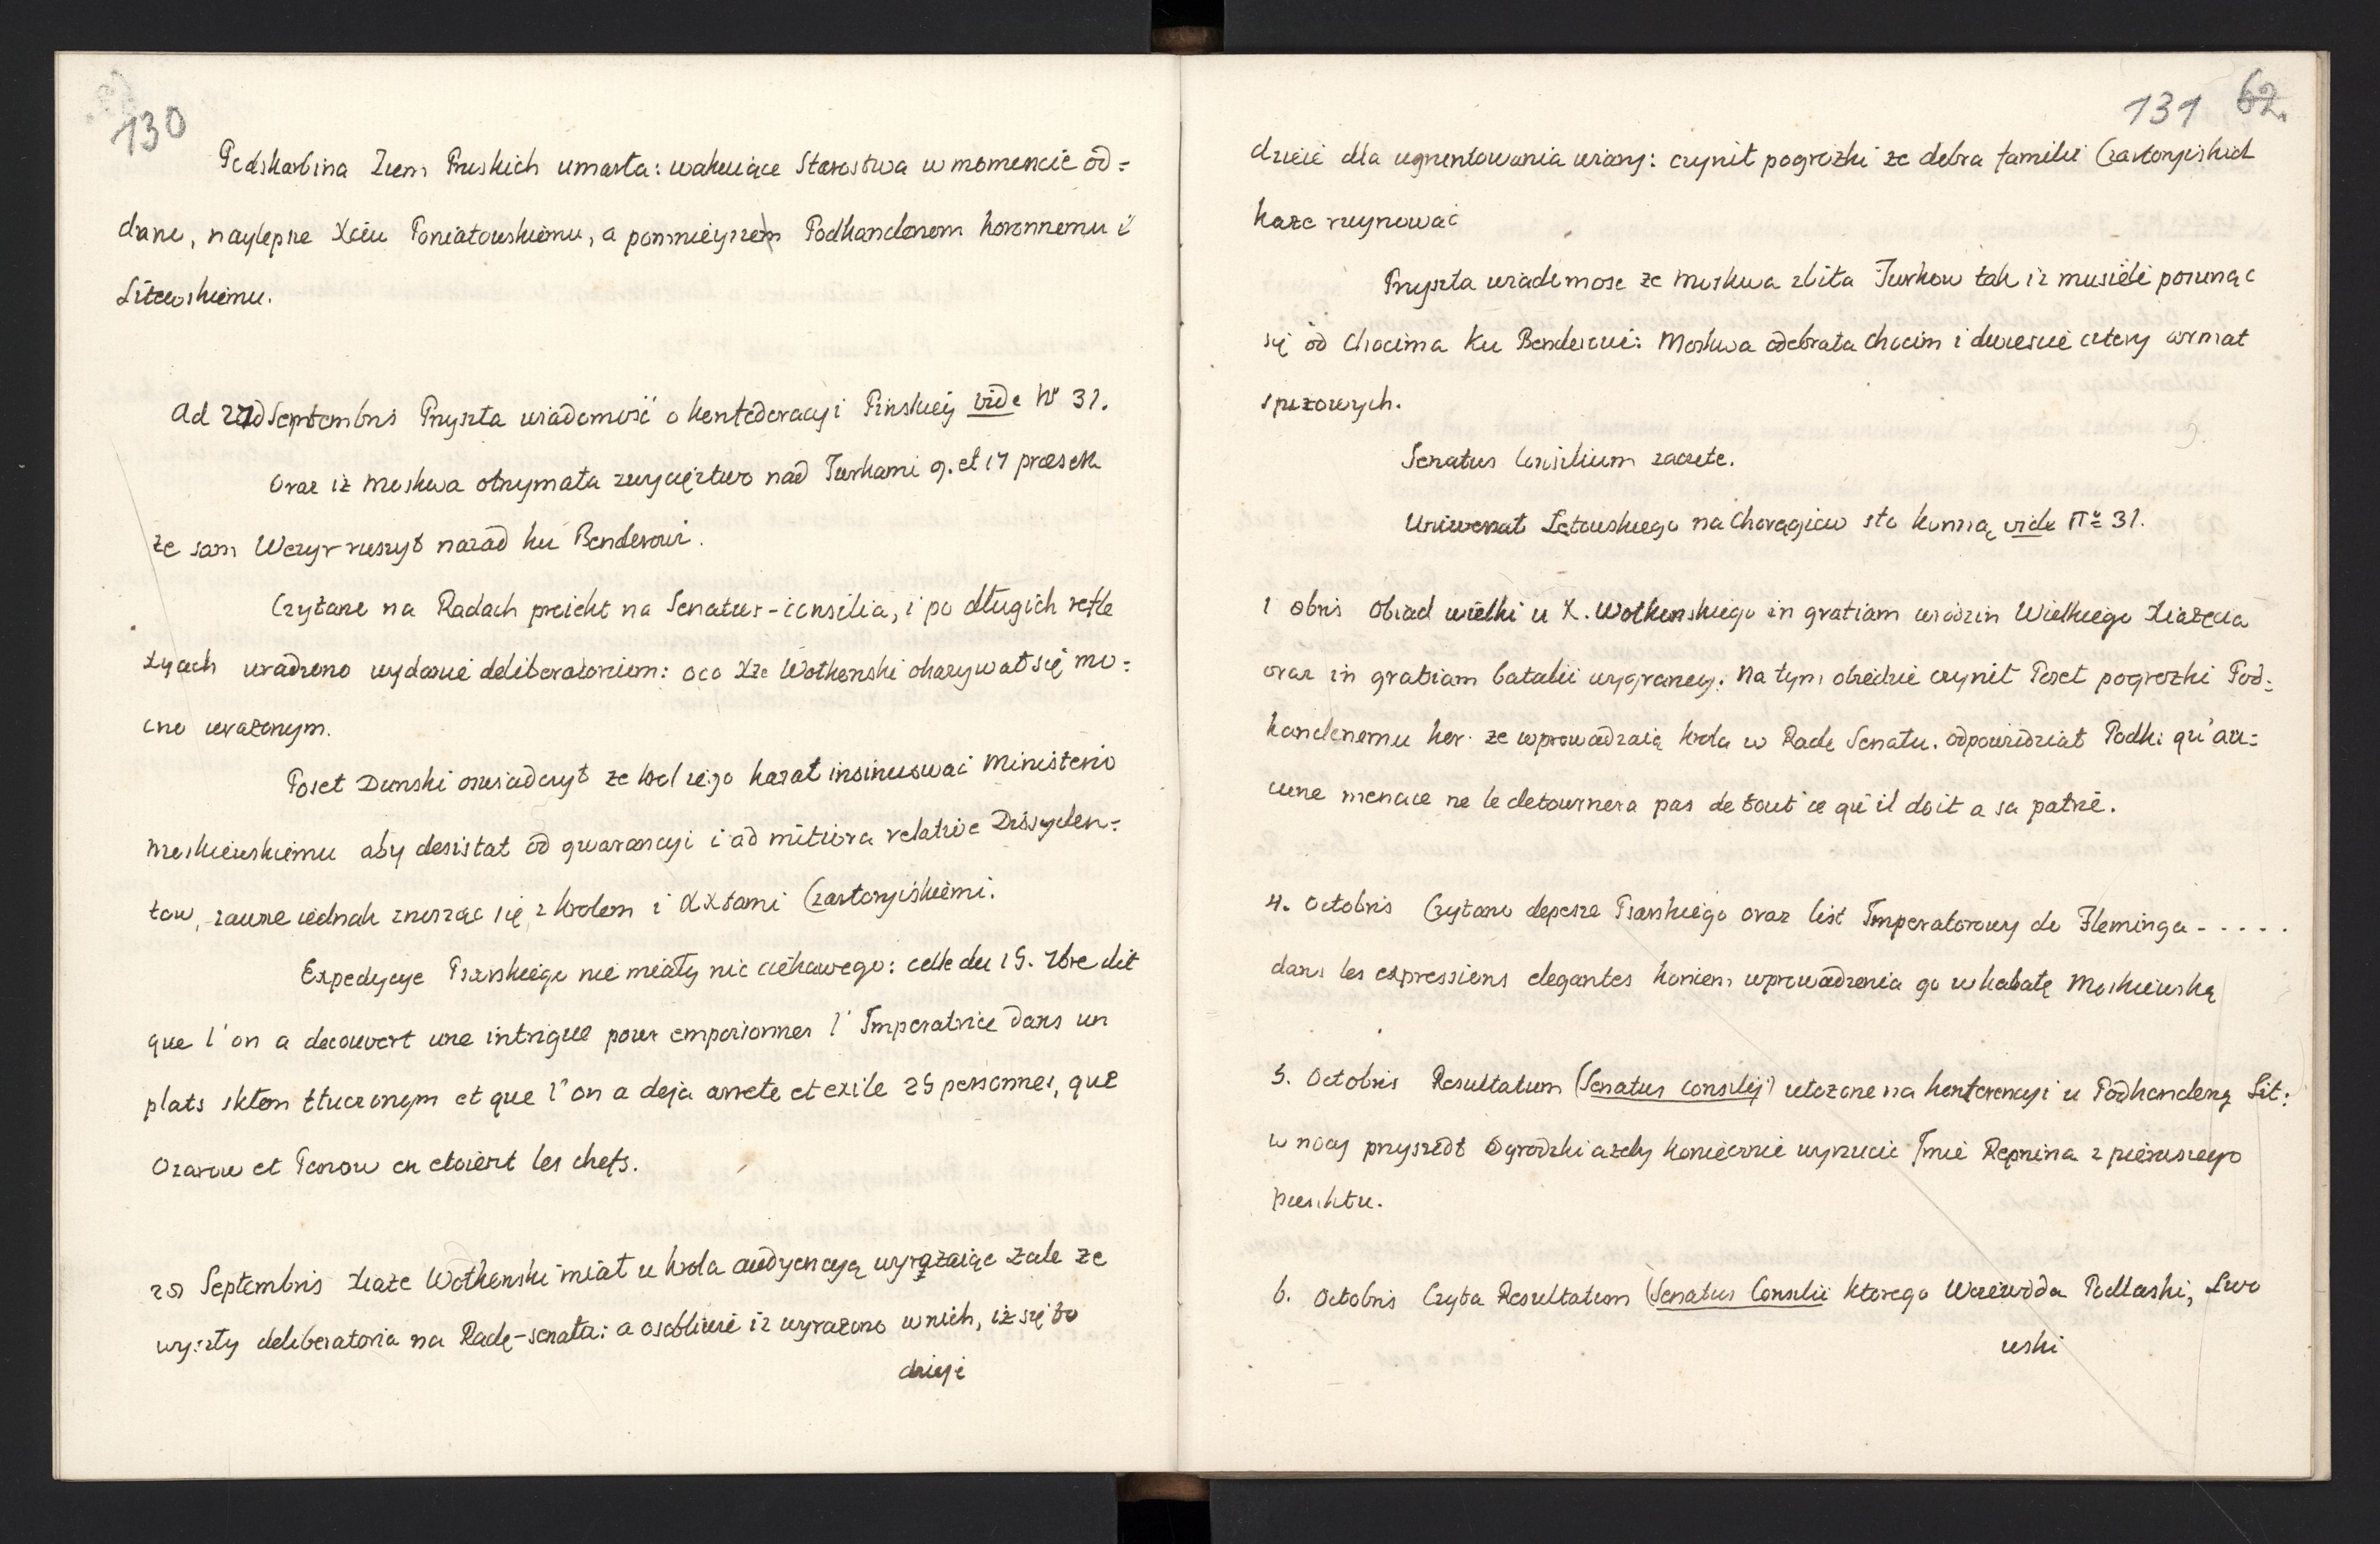 130
Podskarbina Ziem Pruskich umarła: wakuiące Starostwa w momencie od=
dane, naylepsze Xciu Poniatowskiemu, a pomnieyszem Podkanclerzem koronnemu i
Litewskiemu.
Ad 27d Septembris Przyszła wiadomość o konfederacyi Pinskiey vide Nr 31.
Oraz iz Moskwa otrzymała zwycięztwo nad Turkami 9. et 17 praesen
ze sam Wezyr ruszył nazad ku Benderowi.
Czytane na Radach proiekt na Senatus-consilia, i po długich refle
xyach uradzono wydanie deliberatorium: oco Xże Wołkonski okazywał się mo=
cno urażonym.
Poseł Dunski oswiadczył ze krol iego kazał insinuować Ministerio
Moskiewskiemu aby desistat od gwarancyi i ad mitiora relative Dissyden=
tow, zawsze iednak znosząc się z krolem i XXtami Czartoryiskiemi.
Expedycye Psarskiego nie miały nic ciekawego: celle du 15. 7bre dit
que l'on a decouvert une intrigue pour empoisonner l'Imperatrice dans un
plats szkłem tłuczonym et que l'on a deja arrete et exile 25 personnes, que
Ozarow et Panow en etoient les chefs.
28 Septembris Xiaże Wołkonski miał u krola audyencyą wyrażaiąc żale ze
wyszły deliberatoria na Radę-senatu: a osobliwie iz wyrażono w nich, iż się to
dzieje
131 62.
dzieie dla ugruntowania wiary: czynił pogrozki ze dobra familii Czartoryiskich
każe ruynować
Przyszła wiadomosc ze Moskwa zbiła Turkow tak iz musieli posunąc
się od Chocima ku Benderowi: Moskwa odebrała Chocim i dwiescie cztery armat
spizowych.
Senatus Consilium zaczete.
Uniwersał Letowskiego na Chorągiew sto konną vide No 31.
1 8bris Obiad wielki u X. Wołkonskiego in gratiam urodzin Wielkiego Xiażęcia
oraz in gratiam batalii wygraney. Na tym obiedzie czynił Poseł pogrozki Pod=
kanclerzemu kor. ze wprowadzaią krola w Radę Senatu. odpowiedział Podk: qu'au=
cune menace ne le detournera pas de tout ce qu'il doit a sa patrie.
4. Octobris Czytano depesze Psarskiego oraz list Imperatorowy do Fleminga - - - - -
dans les expressions elegantes koniem wprowadzenia go w kabałę Moskiewską
5. Octobris Resultatum (Senatus consilij) ułozone na konferencyi u Podkanclerzą Lit:
w nocy przyszedł Ogrodzki azeby koniecznie wyrzucic Imie Repnina z pierwszego
punktu.
6. Octobris Czyta Resultatum (Senatus Consilii ktorego Woiewoda Podlaski, Lwo
wski